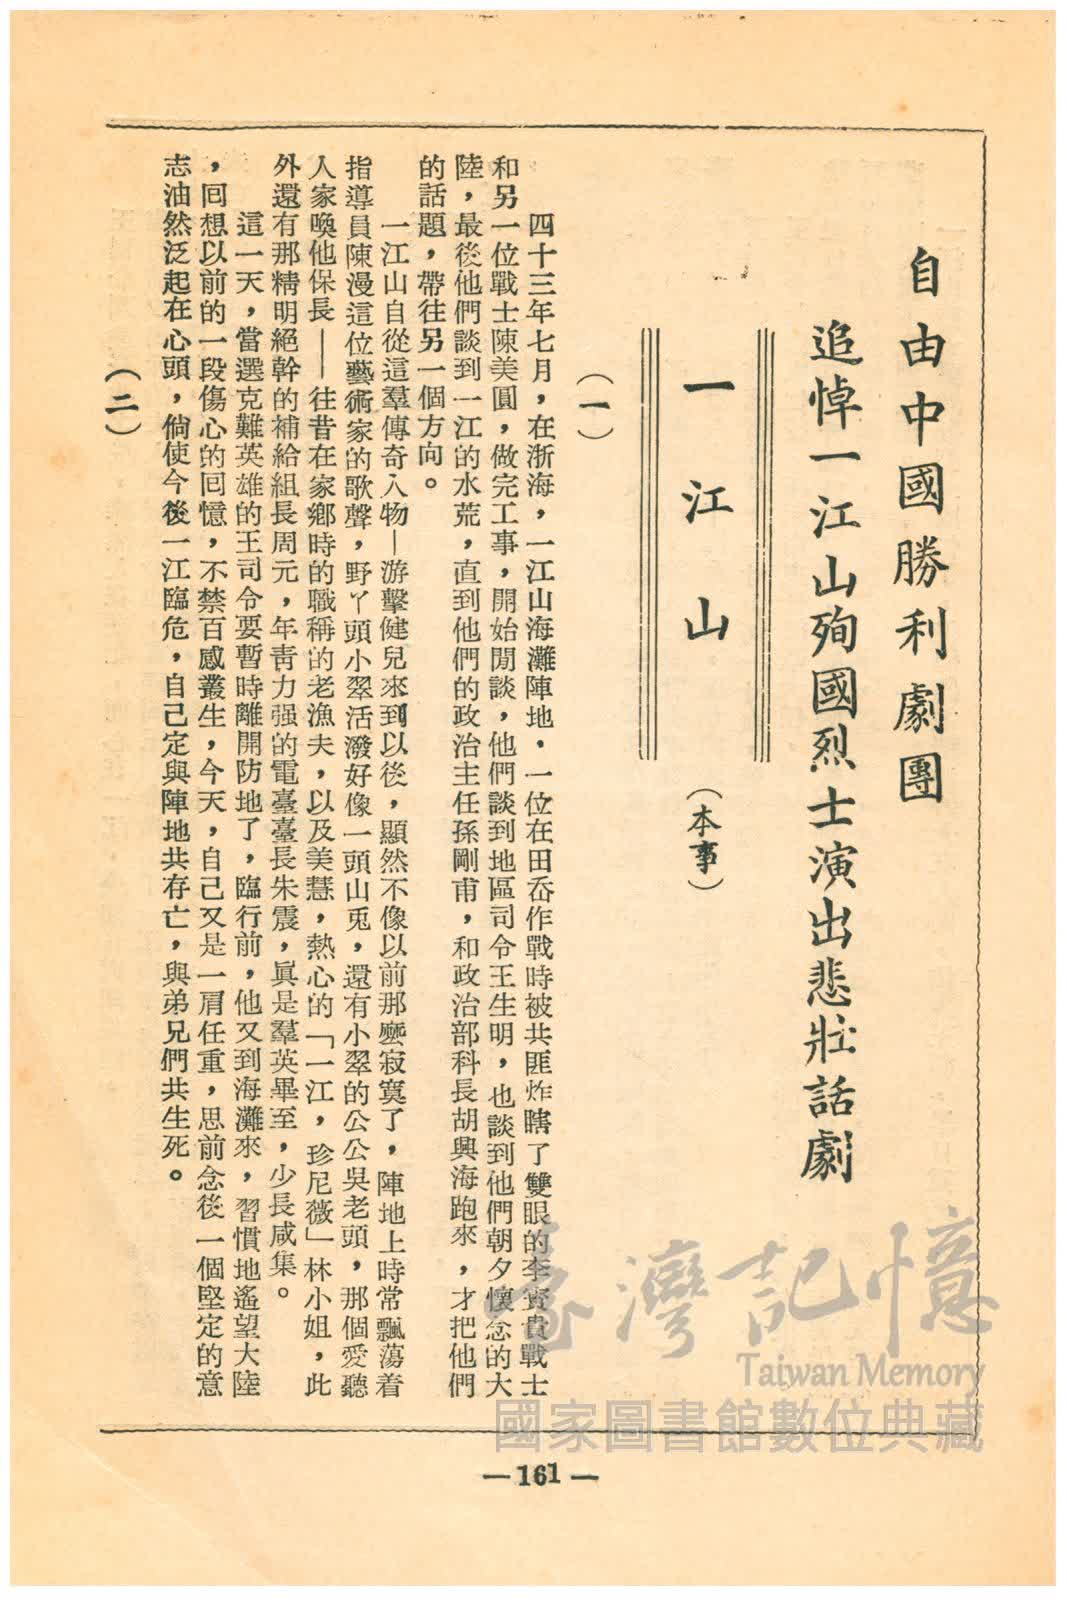 自由中國勝利劇團
追悼一江山殉國烈士演出悲壯話劇
一江山
(本事)
(一)
四十三年七月，在浙海，一江山海灘陣地，一位在田岙作戰時被共匪炸瞎了雙眼的李寶貴戰士
和另一位戰士陳美圓，做完工事，開始閒談，他們談到地區司令王生明，也談到他們朝夕懷念的大
陸，最後他們談到一江的水荒，直到他們的政治主任孫剛甫，和政治部科長胡興海跑來，才把他們
的話題，帶往另一個方向。
一江山自從這羣傳奇人物—游擊健兒來到以後，顯然不像以前那麼寂寞了，陣地上時常飄蕩着
指導員陳漫這位藝術家的歌聲，野丫頭小翠活潑好像一頭山兎，還有小翠的公公吳老頭，那個愛聽
人家喚他保長——往昔在家鄉時的職稱的老漁夫，以及美慧，熱心的「一江，珍尼薇」林小姐，此
外還有那精明絕幹的補給組長周元，年靑力强的電臺臺長朱震，眞是羣英畢至，少長咸集。
這一天，當選克難英雄的王司令要暫時離開防地了，臨行前，他又到海灘來，習慣地遙望大陸
，囘想以前的一段傷心的囘憶，不禁百感叢生，今天，自己又是一肩任重，思前念後一個堅定的意
志油然泛起在心頭，倘使今後一江臨危，自己定與陣地共存亡，與弟兄們共生死。
(二)
臺灣記憶
Taiwan Memory
國家圖書館數位典藏
—161—